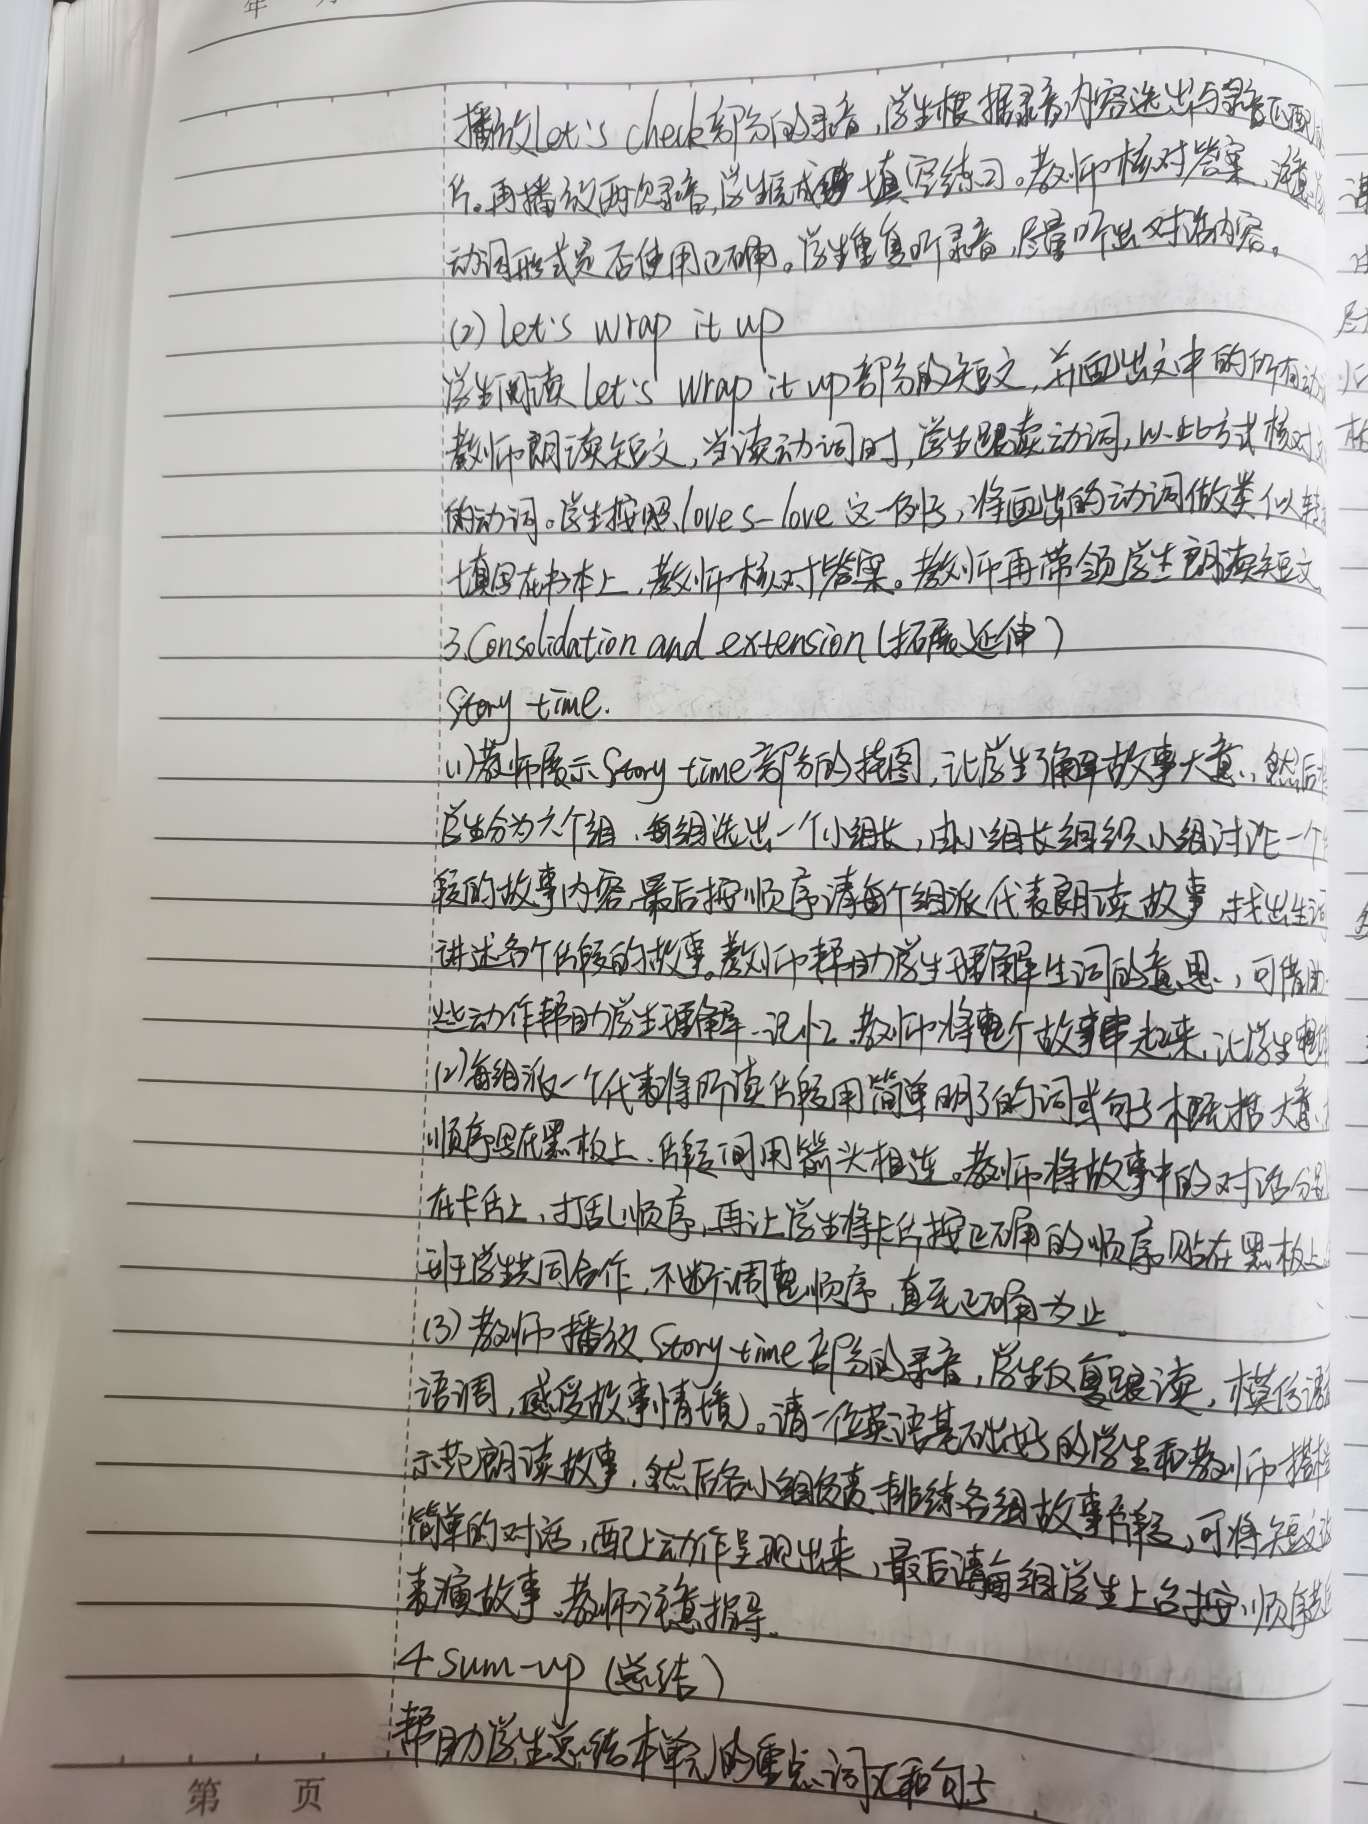 年 月
播放Let's check部分的录音,学生根据录音内容选出与录音匹配
片。再播放两次录音,学生完成 填空练习。教师核对答案,注意
动词形式是否使用正确。学生重复听录音,尽量听出对话内容。
(2) Let's wrap it up
学生阅读Let's wrap it up部分的短文,并画出文中的所有动
教师朗读短文,当读动词时,学生跟读动词,以此方式核对
的动词。学生按照loves-love这一例子,将画出的动词做类似转
填写在书本上,教师核对答案。教师再带领学生朗读短文
3.Consolidation and extension(拓展延伸)
Story time.
(1)教师展示Story time部分的挂图,让学生了解故事大意,然后
学生分为六个组,每组选出一个小组长,由小组长组织小组讨论一个
段的故事内容,最后按顺序请每个组派代表朗读故事,找出生词
讲述各个片段的故事。教师帮助学生理解生词的意思,可借助
些动作帮助学生理解、记忆。教师将整个故事串起来,让学生
(2)每组派一个代表将所读片段用简单明了的词或句子概括大意,
顺序写在黑板上,片段间用箭头相连。教师将故事中的对话分别
在卡片上,打乱顺序,再让学生将卡片按正确的顺序贴在黑板上
班学生共同合作,不断调整顺序,直至正确为止。
(3)教师播放Story time部分的录音,学生反复跟读,模仿语
语调,感受故事情境。请一位英语基础好的学生和教师搭档
示范朗读故事,然后各小组负责排练各组故事片段,可将短文
简单的对话,配上动作呈现出来,最后请每组学生上台按顺序
表演故事,教师注意指导。
4.Sum-up(总结)
帮助学生总结本单元的重点词汇和句子
第 页